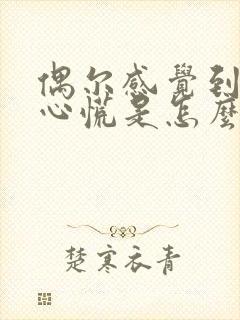 偶尔感覺到
心慌是怎麽
楚寒衣青